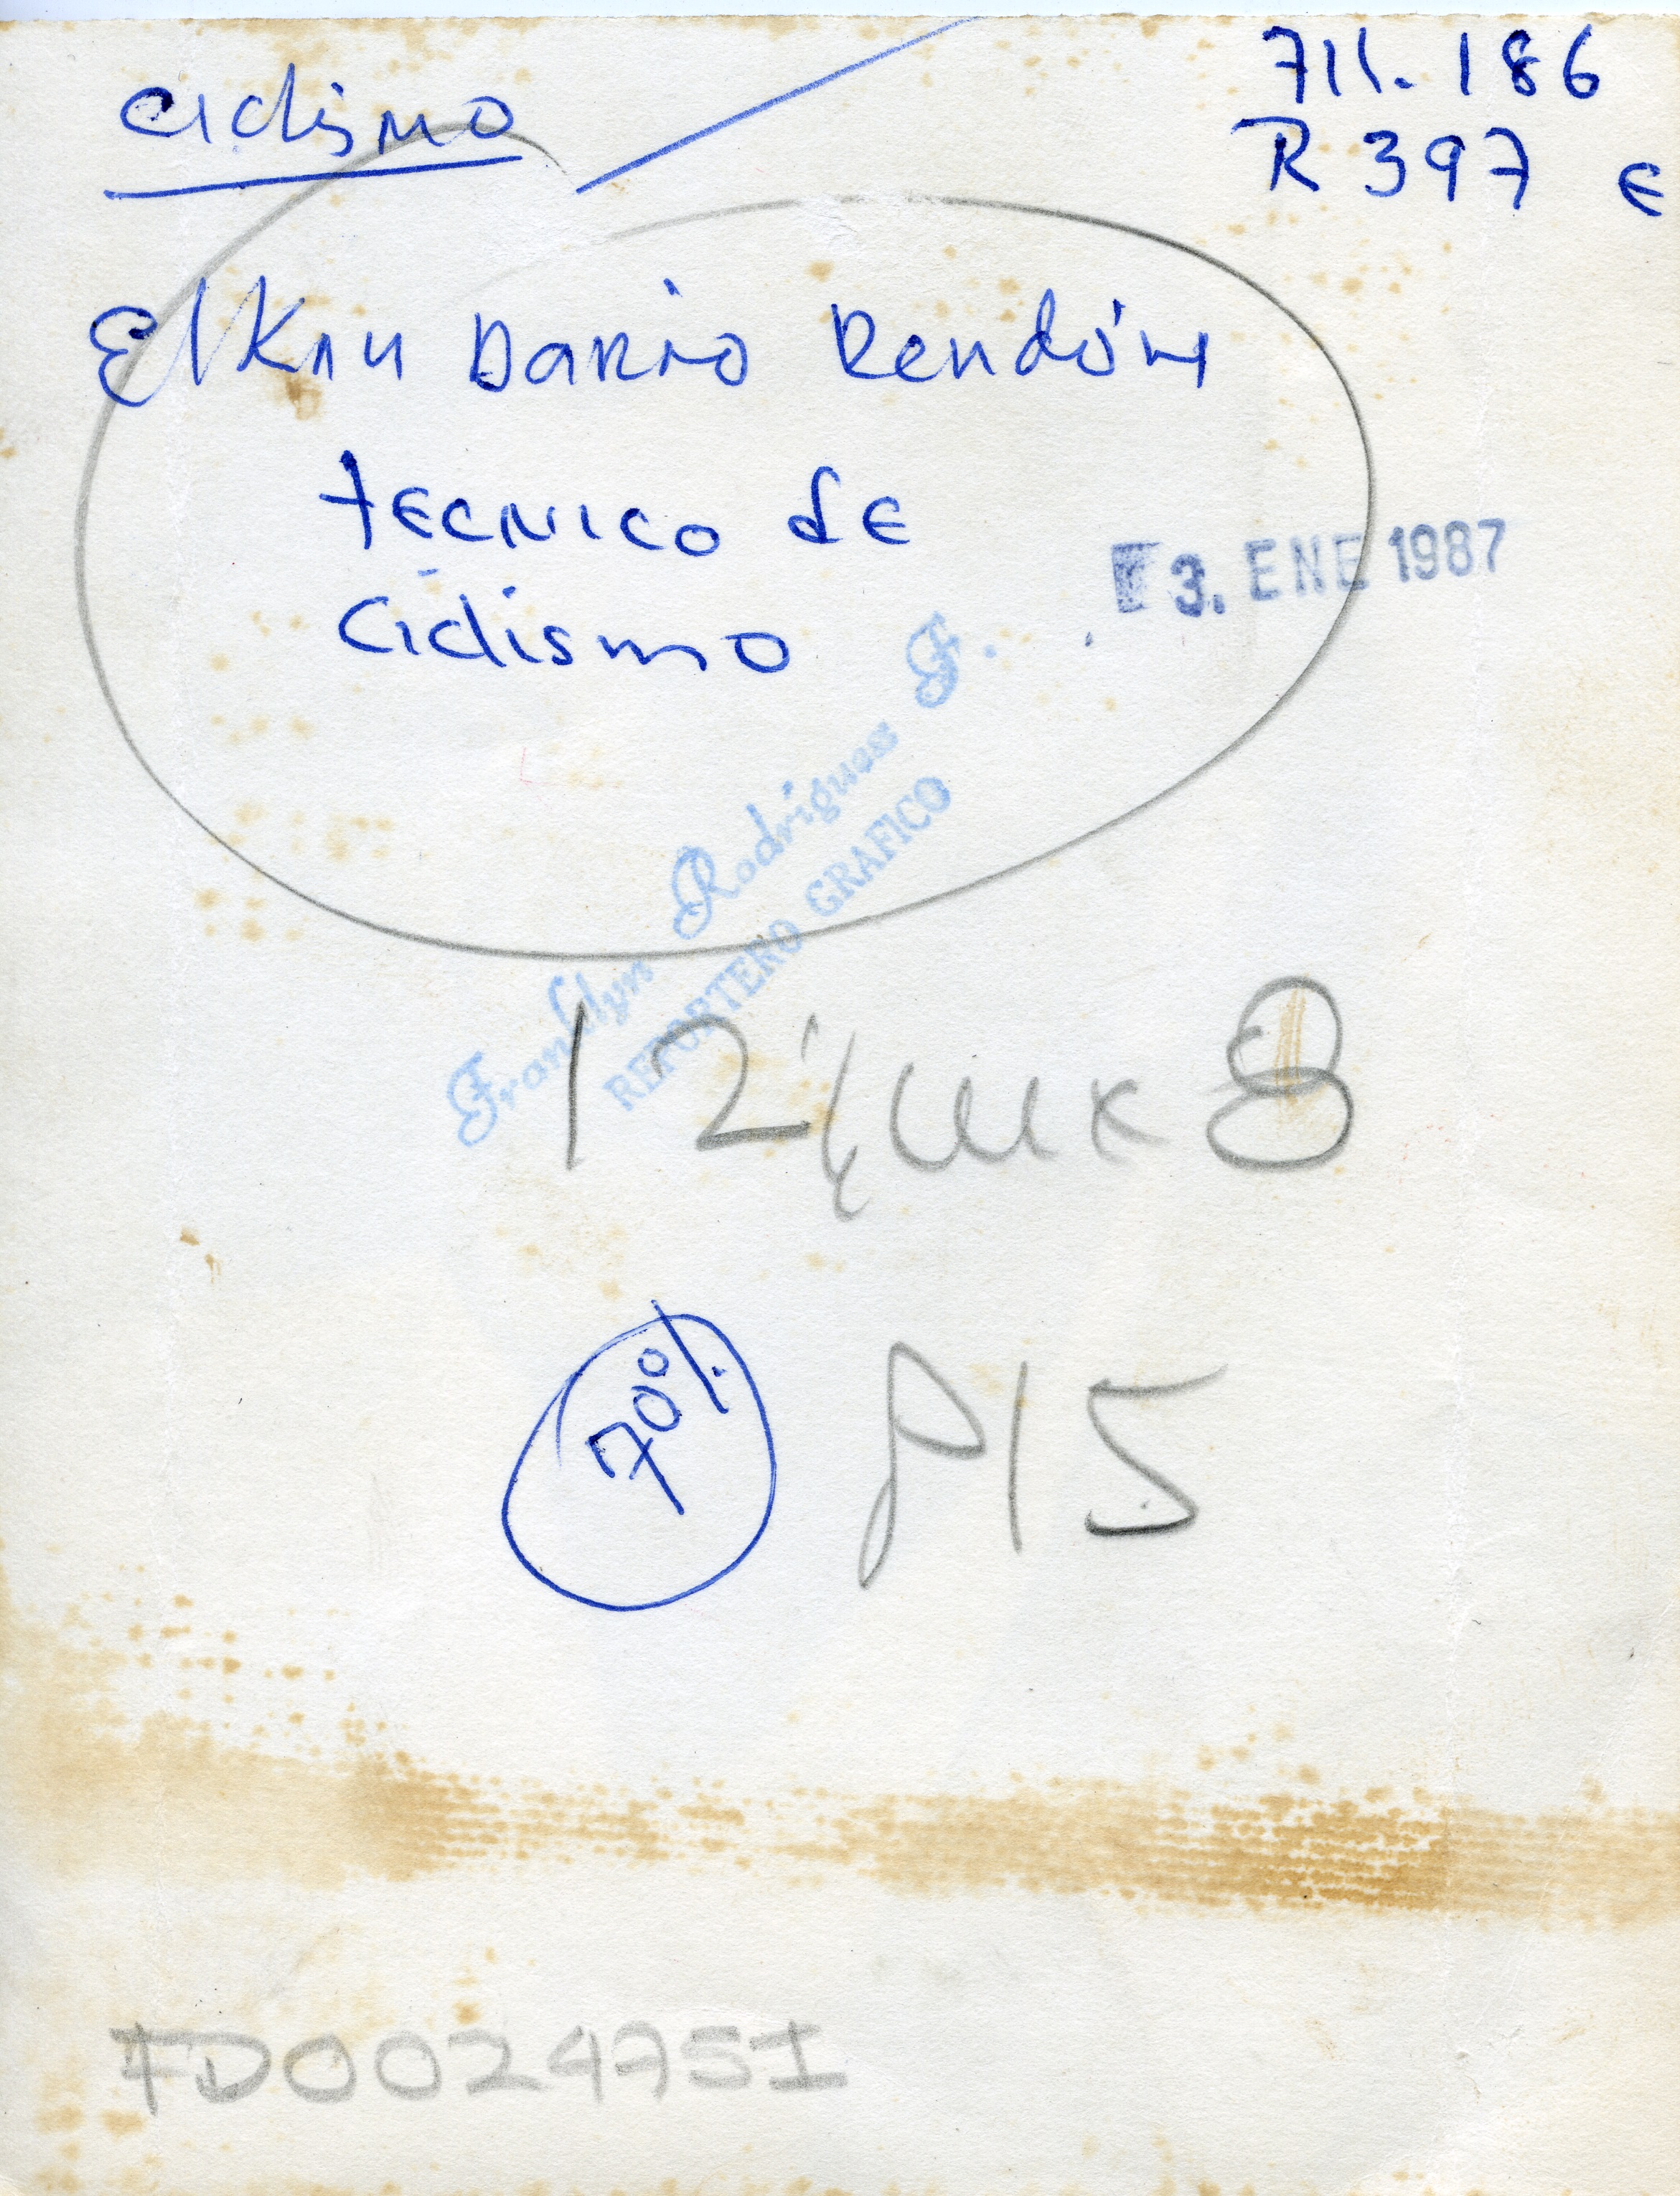 Ciclismo
711.186
R 397 E
Elkin Dario Rendón
tecnico de
Ciclismo
3. ENE 1987
Franklyn Rodriguez F.
REPORTERO GRAFICO
12 x 8
70%
P15
FD0024751